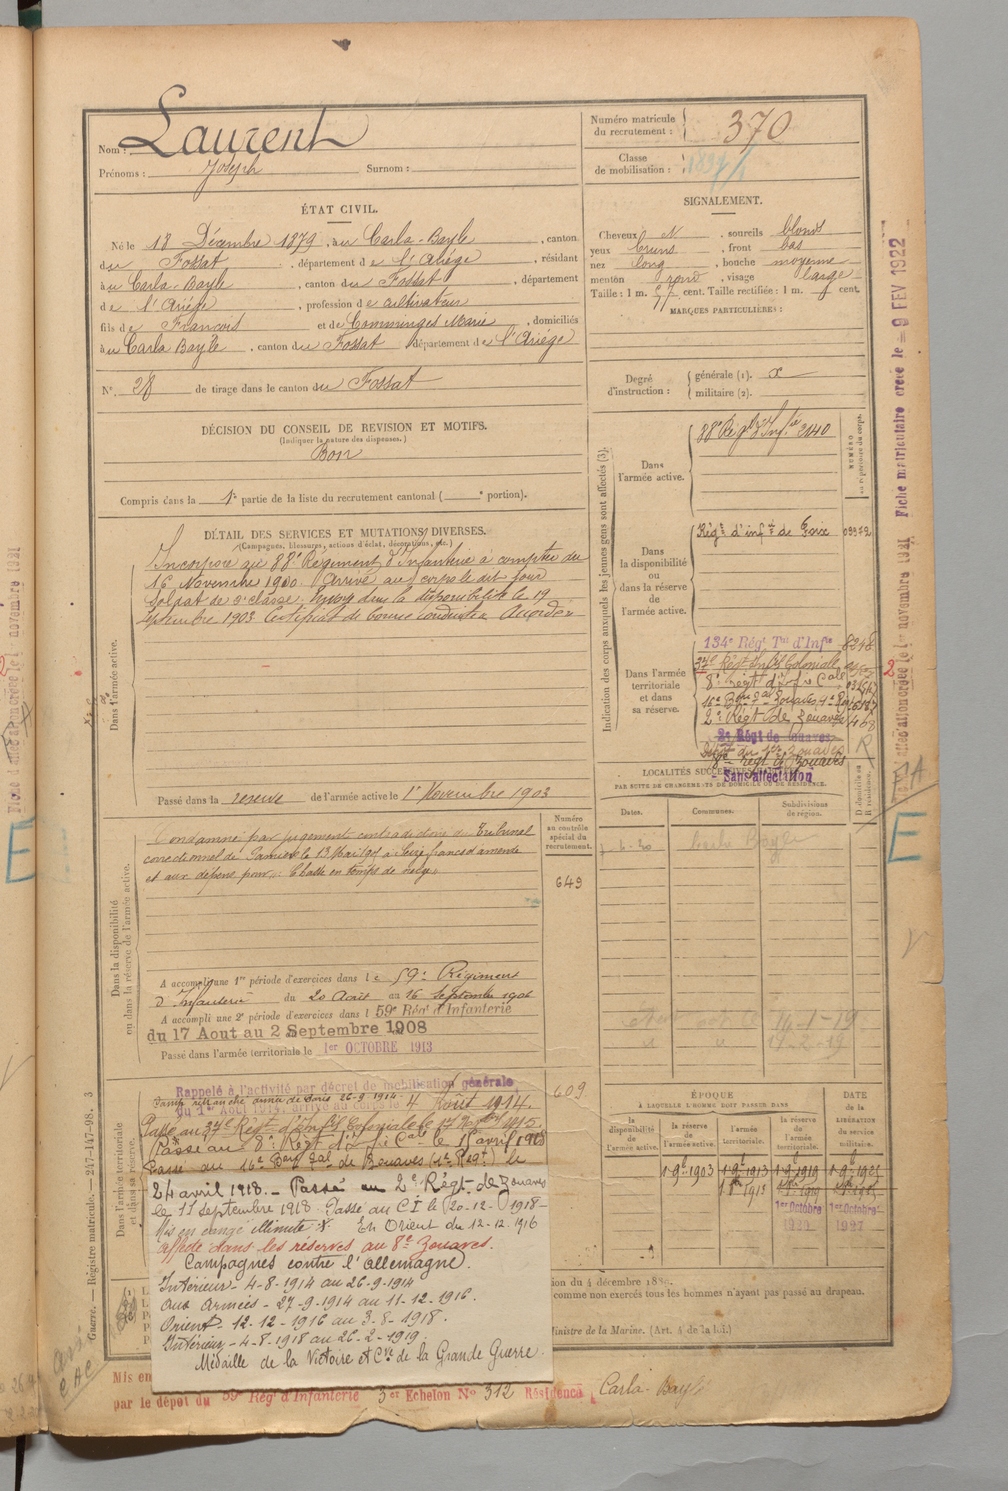 Nom : Laurent
Prénoms : Joseph Surnom :
Numéro matricule du recrutement : 370
Classe de mobilisation :
ÉTAT CIVIL.
Né le 18 Décembre 1879, à Carla-Bayle, canton
du Fossat, département de l'Ariège, résidant
à Carla-Bayle, canton du Fossat, département
de l'Ariège, profession de cultivateur
fils de François et de Comminges Marie, domiciliés
à Carla Bayle, canton du Fossat département de l'Ariège
N° 28 de tirage dans le canton du Fossat
SIGNALEMENT.
Cheveux N, sourcils blonds
yeux bruns, front bas
nez long, bouche moyenne
menton rond, visage large
Taille : 1 m. 57 cent. Taille rectifiée : 1 m. cent.
MARQUES PARTICULIÈRES :
Degré d'instruction : générale (1). x
militaire (2).
DÉCISION DU CONSEIL DE REVISION ET MOTIFS.
(Indiquer la nature des dispenses.)
Bon
Compris dans la 1re partie de la liste du recrutement cantonal ( portion).
DÉTAIL DES SERVICES ET MUTATIONS DIVERSES.
(Campagnes, blessures, actions d'éclat, décorations, etc.)
Dans l'armée active.
Incorporé au 88e Régiment d'Infanterie à compter du
16 Novembre 1900. Arrivé au corps le dit jour
Soldat de 2e classe. Envoyé dans la disponibilité le 19
Septembre 1903 Certificat de bonne conduite Accordé
Passé dans la réserve de l'armée active le 1r Novembre 1903
Dans la disponibilité ou dans la réserve de l'armée active.
Condamné par jugement contradictoire du Tribunal
correctionnel de Pamiers le 13 Mai 1905 à Seize francs d'amende
et aux dépens pour : Chasse en temps de neige
A accompli une 1re période d'exercices dans le 59e Régiment
d'Infanterie du 20 Août au 16 Septembre 1906
A accompli une 2e période d'exercices dans le 59e Régt d'Infanterie
du 17 Aout au 2 Septembre 1908
Passé dans l'armée territoriale le 1er OCTOBRE 1913
Numéro au contrôle spécial du recrutement.
649
609
Dans l'armée territoriale et dans sa réserve.
Rappelé à l'activité par décret de mobilisation générale
du 1er Août 1914, arrivé au corps le 4 Août 1914.
Camp retranché armée de Paris 26-9-1914
Passé au 37e Régt d'Infie Coloniale le 1915
Passé au 8e Régt d'Infie Cale le 15 avril 1918
Passé au 16e Bon Sal de Zouaves (4e Régt) le
24 avril 1918. - Passé au 2e Régt de Zouaves
le 11 Septembre 1918. Passé au CI le (20-12-1918-
Mis en congé illimité En Orient du 12-12-1916
affecté dans les réserves au 8e Zouaves.
Campagnes contre l'allemagne.
Intérieur - 4-8-1914 au 26-9-1914
aux armées - 27-9-1914 au 11-12-1916.
Orient - 12-12-1916 au 3-8-1918.
Intérieur - 4-8-1918 au 26-2-1919.
Médaille de la Victoire et Cve de la Grande Guerre.
Indication des corps auxquels les jeunes gens sont affectés (3).
Dans l'armée active.
88e Régt d'Infie 2140
Dans la disponibilité ou dans la réserve de l'armée active.
Régt d'infie de Foix 03952
Dans l'armée territoriale et dans sa réserve.
134e Régt Tal d'Infie 8248
37e Régt Infie Coloniale
8e Régt d'Infie Cale
16e Bon Sal Zouaves 4e R
2e Régt de Zouaves
2e Régt de Zouaves
Dépôt du 1er Zouaves
8e régt de Zouaves
Sans affectation
LOCALITÉS SUCCESSIVES
PAR SUITE DE CHANGEMENTS DE DOMICILE OU DE RÉSIDENCE.
Dates. Communes. Subdivisions de région. D domicile ou R résidence.
Carla Bayle
14-1-19
ÉPOQUE
À LAQUELLE L'HOMME DOIT PASSER DANS
DATE de la LIBÉRATION du service militaire.
la disponibilité de l'armée active.
la réserve de l'armée active.
l'armée territoriale.
la réserve de l'armée territoriale.
1 9bre 1903 1 9bre 1913 1 9bre 1919
1er Octobre 1er Octobre
1927
ion du 4 décembre 1889.
comme non exercés tous les hommes n'ayant pas passé au drapeau.
Ministre de la Marine. (Art. 4 de la loi.)
Mis en
par le dépôt du 59e Régt d'Infanterie 3er Echelon No 312 Résidence Carla-Bayle
Guerre. — Registre matricule. — 247-147-98. 3
Fiche matriculaire créée le - 9 FEV 1922
E
E